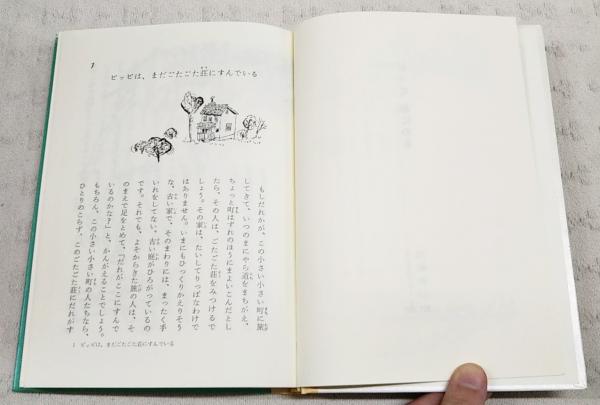 1
ピッピは、まだごたごた荘にすんでいる
もしだれかが、この小さい小さい町に旅
してきて、いつのまにやら道をまちがえ、
ちょっと町はずれのほうにまよいこんだとし
たら、その人は、ごたごた荘をみつけるで
しょう。その家は、たいしてりっぱなわけで
はありません。いまにもひっくりかえりそう
な、古い家で、そのまわりには、まったく手
いれをしてない、古い庭がひろがっているの
です。それでも、よそからきた旅の人は、そ
のまえで足をとめて、「だれがここにすんで
いるのかな？」と、かんがえることでしょう。
もちろん、この小さい小さい町の人たちなら、
ひとりのこらず、このごたごた荘にだれがす
1 ピッピは、まだごたごた荘にすんでいる